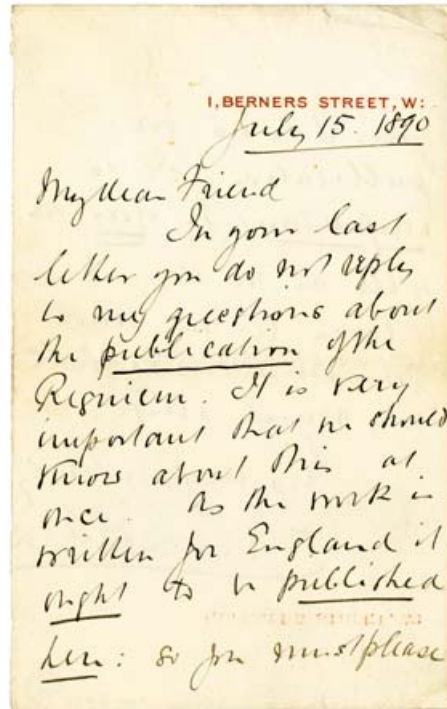 1, BERNERS STREET, W:
July 15. 1890
My dear Friend
In your last
letter you do not reply
to my questions about
the publication of the
Requiem. It is very
important that we should
know about this at
once. As the work is
written for England it
ought to be published
here: so you must please